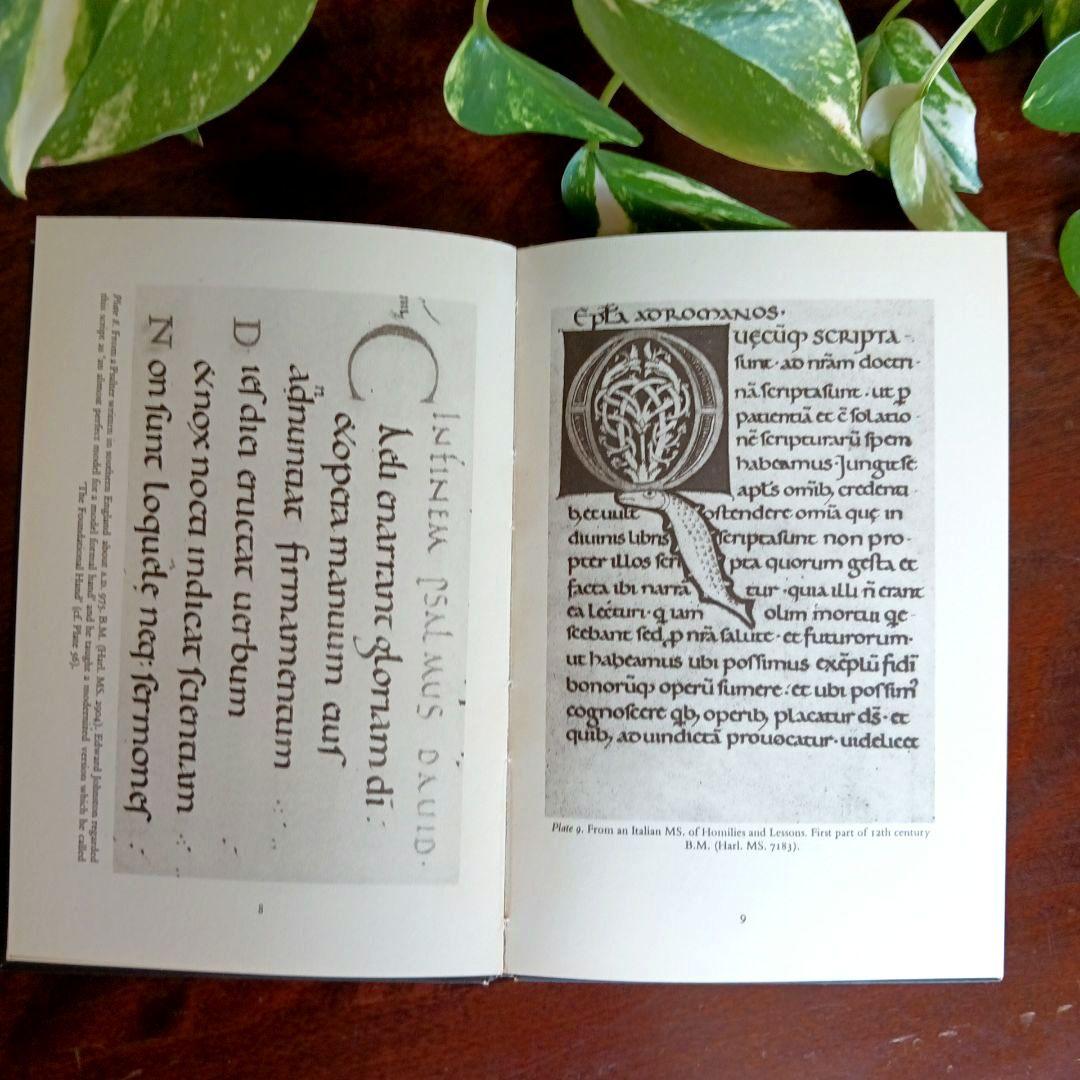 IN FINEM PSALMUS DAVID.
Cæli enarrant gloriam di:
&opera manuum eiuſ
adnuntiat firmamentum
n
Dieſ diei eructat uerbum
&nox nocti indicat ſcientiam
Non ſunt loquele neq; ſermoneſ
Plate 8. From a Psalter written in southern England about A.D. 975. B.M. (Harl. MS. 2904). Edward Johnston regarded
this script as "an almost perfect model for a model formal hand" and he taught a modernized version which he called
"The Foundational Hand" (cf. Plate 56).
8
Epła AD ROMANOS.
QUĘCŪQ SCRIPTA
ſunt · ad nr̄am doctri
nā ſcripta ſunt . ut p
patientiā et c̄ſolatio
nē ſcripturarū ſpem
habeamus · Jungit ſe
apl̄s omīb; credenti
b; et uult oſtendere omīa quę in
diuinis libris ſcripta ſunt non pro-
pter illos ſcri pta quorum geſta et
facta ibi narra tur · quia illi n̄ erant
ea lecturi · q iam olim mortui qe-
ſcebant ſed p nr̄a ſalute · et futurorum ·
ut habeamus ubi poſſimus exēplū fidī
bonorūq operū ſumere : et ubi poſſim
cognoſcere qb; operib; placatur dš · et
quib; ad uindictā prouocatur · uidelicet
Plate 9. From an Italian MS. of Homilies and Lessons. First part of 12th century
B.M. (Harl. MS. 7183).
9